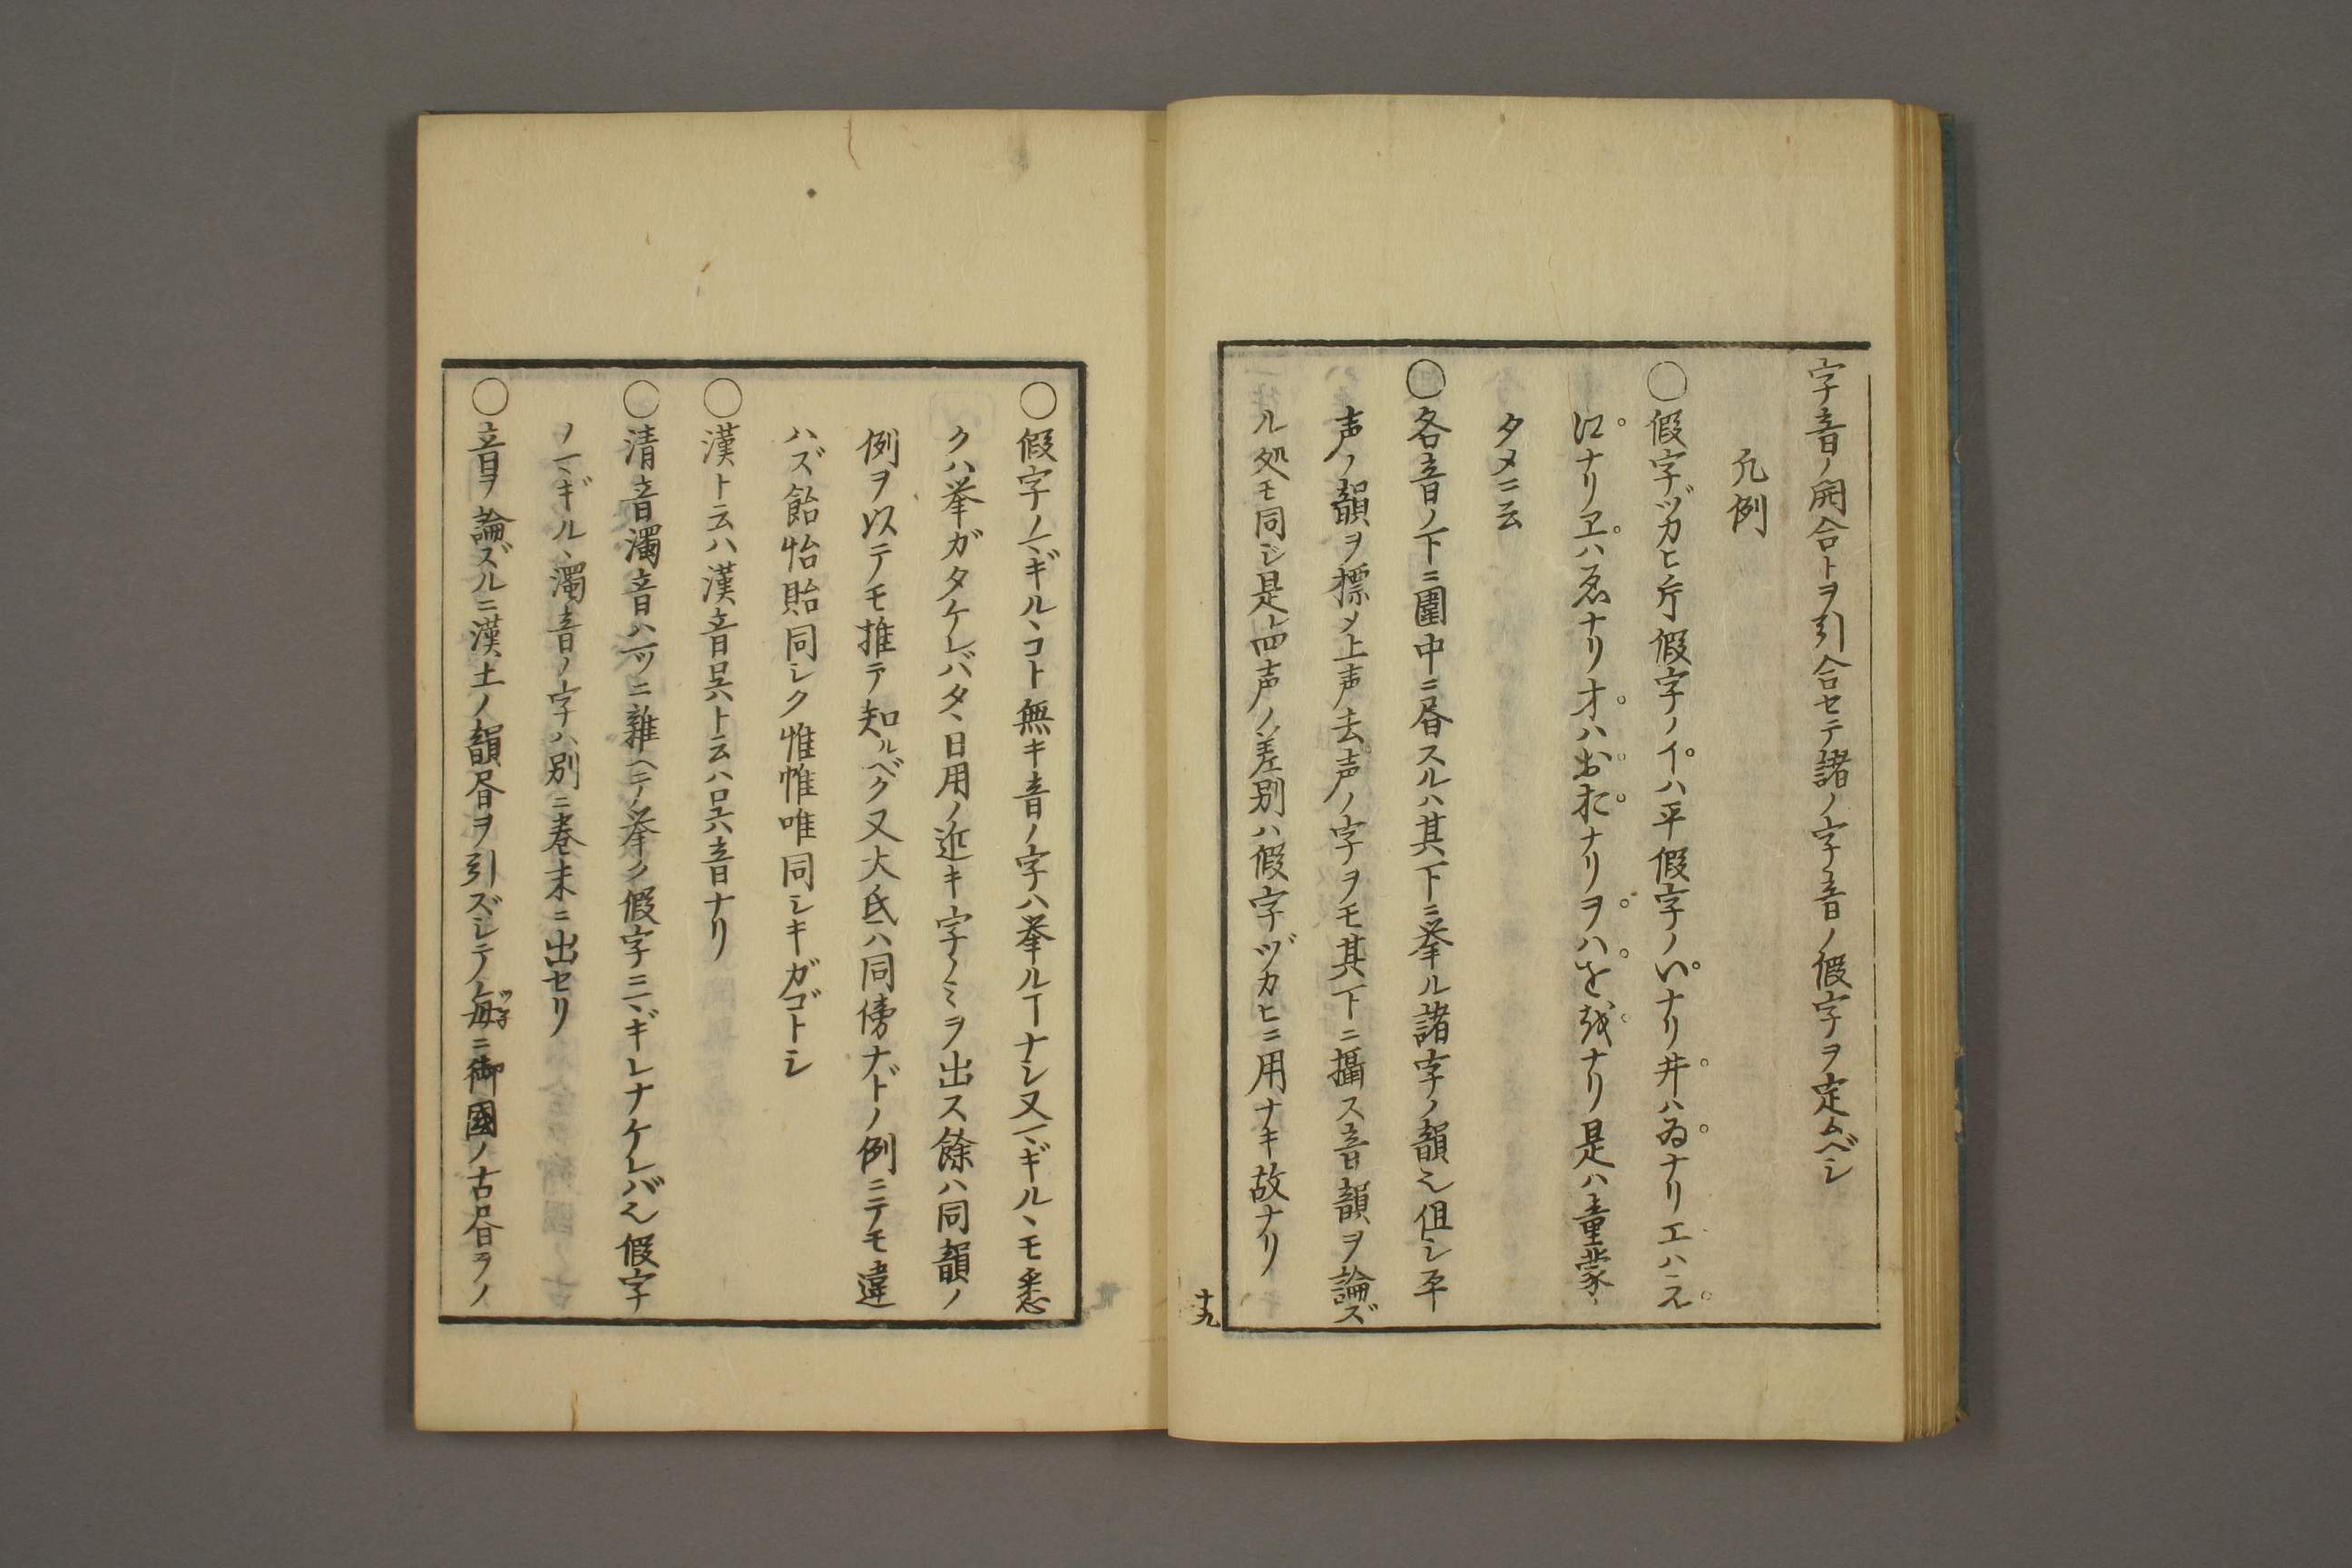 字音ノ開合トヲ引合セテ諸ノ字音ノ假字ヲ定ムベシ
凡例
○假字ヅカヒ片假字ノイハ平假字ノいナリ井ハゐナリエハえ
江ナリヱハゑナリオハおおナリヲハを越ナリ是ハ童蒙ノ
タメニ云
○各音ノ下ニ圍中ニ昏スルハ其下ニ挙ル諸字ノ韻也但シ平
声ノ韻ヲ標メ上声去声ノ字ヲモ其下ニ攝ス音韻ヲ論ズ
ル処モ同シ是四声ノ差別ハ假字ヅカヒニ用ナキ故ナリ
十九
○假字ノマギルヽコト無キ音ノ字ハ挙ルヿナシ又マギルヽモ悉
クハ挙ガタケレバタヽ日用ノ近キ字ノミヲ出ス餘ハ同韻ノ
例ヲ以テモ推テ知ルベク又大氐ハ同傍ナドノ例ニテモ違
ハズ飴怡貽同シク惟帷唯同シキガゴトシ
○漢ト云ハ漢音呉ト云ハ呉音ナリ
○清音濁音ハ一ツニ雜ヘテ挙ク假字ニマギレナケレバ也假字
ノマギルヽ濁音ノ字ハ別ニ巻末ニ出セリ
○音ヲ論ズルニ漢土ノ韻昏ヲ引ズシテ毎ツネニ御國ノ古昏ヲノ